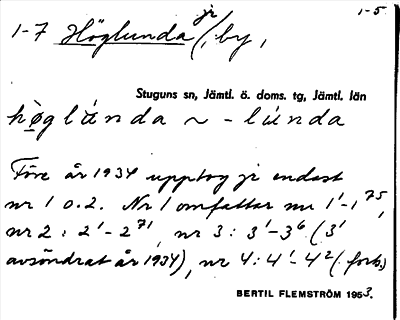 1-5.
1-7 Höglunda jr /, by,
Stuguns sn, Jämtl. ö. doms. tg, Jämtl. län
hö̀glúnda ~ -lúnda
Före år 1934 upptog jr endast
nr 1 o. 2. Nr 1 omfattar nu 1¹-1⁷⁵,
nr 2 : 2¹-2⁷¹, nr 3 : 3¹-3⁶ (3¹
avsöndrat år 1934), nr 4 : 4¹-4² (forts.)
BERTIL FLEMSTRÖM 1953.